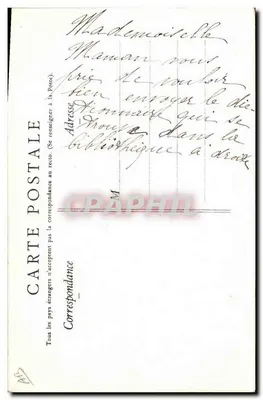 Mademoiselle
Maman vous
prie de vouloir
bien envoyer le dic-
tionnaire qui se
trouve dans la
bibliothèque à droite
CARTE POSTALE
Tous les pays étrangers n'acceptent pas la correspondance au recto. (Se renseigner à la Poste).
Correspondance
Adresse
M
CARTHAPHILIE